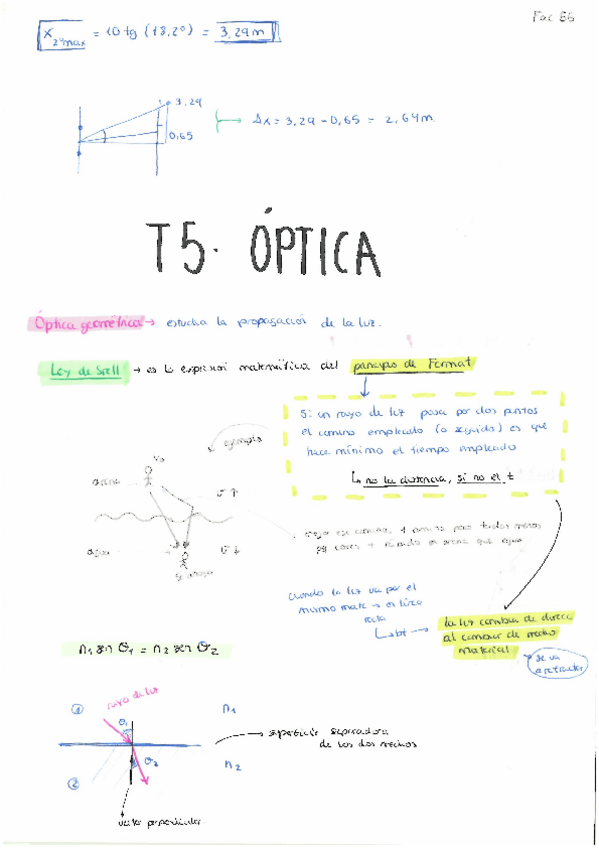 Fac 56
X₂ₙmax = 10 tg (18,2º) = 3,29 m
3,29
0,65
Δx = 3,29 - 0,65 = 2,64 m
T5. ÓPTICA
Óptica geométrica → estudia la propagación de la luz.
Ley de Snell → es la expresión matemática del principio de Fermat
Si un rayo de luz pasa por dos puntos
el camino empleado (o seguido) es que
hace mínimo el tiempo empleado
↳ no la distancia, si no el t
ejemplo
yo
arena
v ↑
agua
v ↓
se ahoga
Cuando la luz va por el
mismo mate → en línea
recta
la luz cambia de direcc
al cambiar de medio
material
se va
a refractar
n₁ sen θ₁ = n₂ sen θ₂
rayo de luz
① θ₁ n₁
superficie separadora
de los dos medios
② θ₂ n₂
recta perpendicular